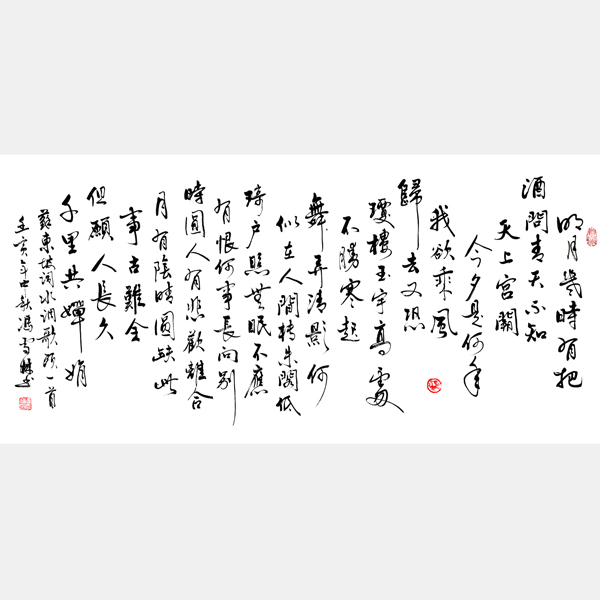 明月幾時有把
酒問青天不知
天上宮闕
今夕是何年
我欲乘風
歸去又恐
瓊樓玉宇高處
不勝寒起
舞弄清影何
似在人間轉朱閣低
琦户照無眠不應
有恨何事長向別
時圓人有悲歡離合
月有陰晴圓缺此
事古難全
但願人長久
千里共嬋娟
蘇東坡詞水調歌頭一首
亥年中秋馮雪書